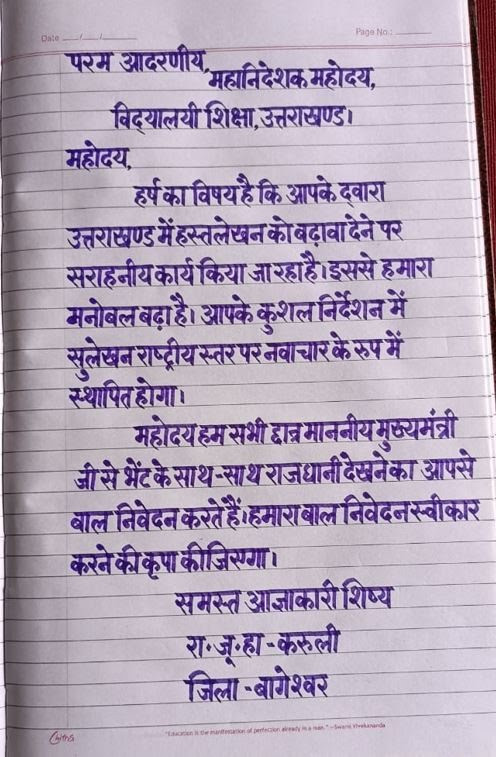 Date __/__/__
Page No.: ____
परम आदरणीय,
महानिदेशक महोदय,
विद्यालयी शिक्षा, उत्तराखण्ड।
महोदय,
हर्ष का विषय है कि आपके दवारा
उत्तराखण्ड में हस्तलेखन को बढ़ावा देने पर
सराहनीय कार्य किया जा रहा है। इससे हमारा
मनोबल बढ़ा है। आपके कुशल निर्देशन में
सुलेखन राष्ट्रीय स्तर पर नवाचार के रुप में
स्थापित होगा।
महोदय हम सभी छात्र माननीय मुख्यमंत्री
जी से भेंट के साथ-साथ राजधानी देखने का आपसे
बाल निवेदन करते हैं। हमारा बाल निवेदन स्वीकार
करने की कृपा कीजिएगा।
समस्त आज्ञाकारी शिष्य
रा॰जू॰हा-करुली
जिला-बागेश्वर
"Education is the manifestation of perfection already in a man." -Swami Vivekananda